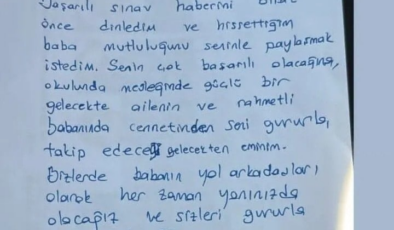 başarılı sınav haberini
önce dinledim ve hissettiğim
baba mutluluğunu seninle paylaşmak
istedim. Senin çok başarılı olacağına,
okulunda mesleğinde güçlü bir
gelecekte ailenin ve rahmetli
babanında cennetinden seni gururla,
takip edeceği gelecekten eminim.
Bizlerde babanın yol arkadaşları
olarak her zaman yanınızda
olacağız ve sizleri gururla